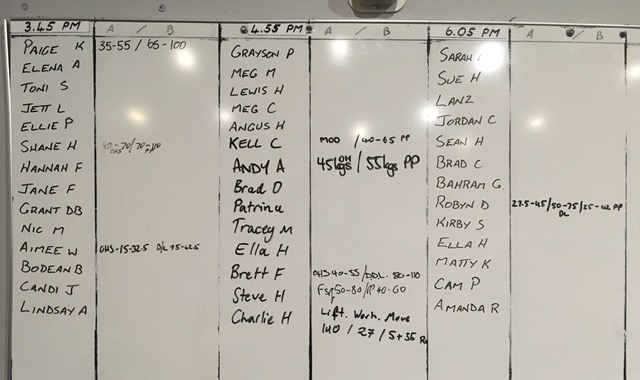 3.45 PM A / B
PAIGE K 35-55 / 65-100
ELENA A
TONI S
JETT L
ELLIE P
SHANE H 40-70/70-110
OHS PP
HANNAH F
JANE F
GRANT DB
NIC M
AIMEE W OHS-15-32.5 D/L 15-42.5
BODEAN B
CANDI J
LINDSAY A
4.55 PM A / B
GRAYSON P
MEG M
LEWIS H
MEG C
ANGUS H
KELL C MOD / 40-65 PP
ANDY A 45kgs OH / 55kgs PP
Brad D
Patrina
Tracey M
Ella H
Brett F OHS 40-55 / DDL. 80-110
Steve H 50-80 / PP 40-60
Charlie H Lift. Work. Move
140 / 27 / 5+55
6.05 PM A / B
SARAH
SUE H
LANZ
JORDAN C
SEAN H
BRAD C
BAHRAM G
ROBYN D 27.5-45/50-75/25-42 PP
DL
KIRBY S
ELLA H
MATTY K
CAM P
AMANDA R